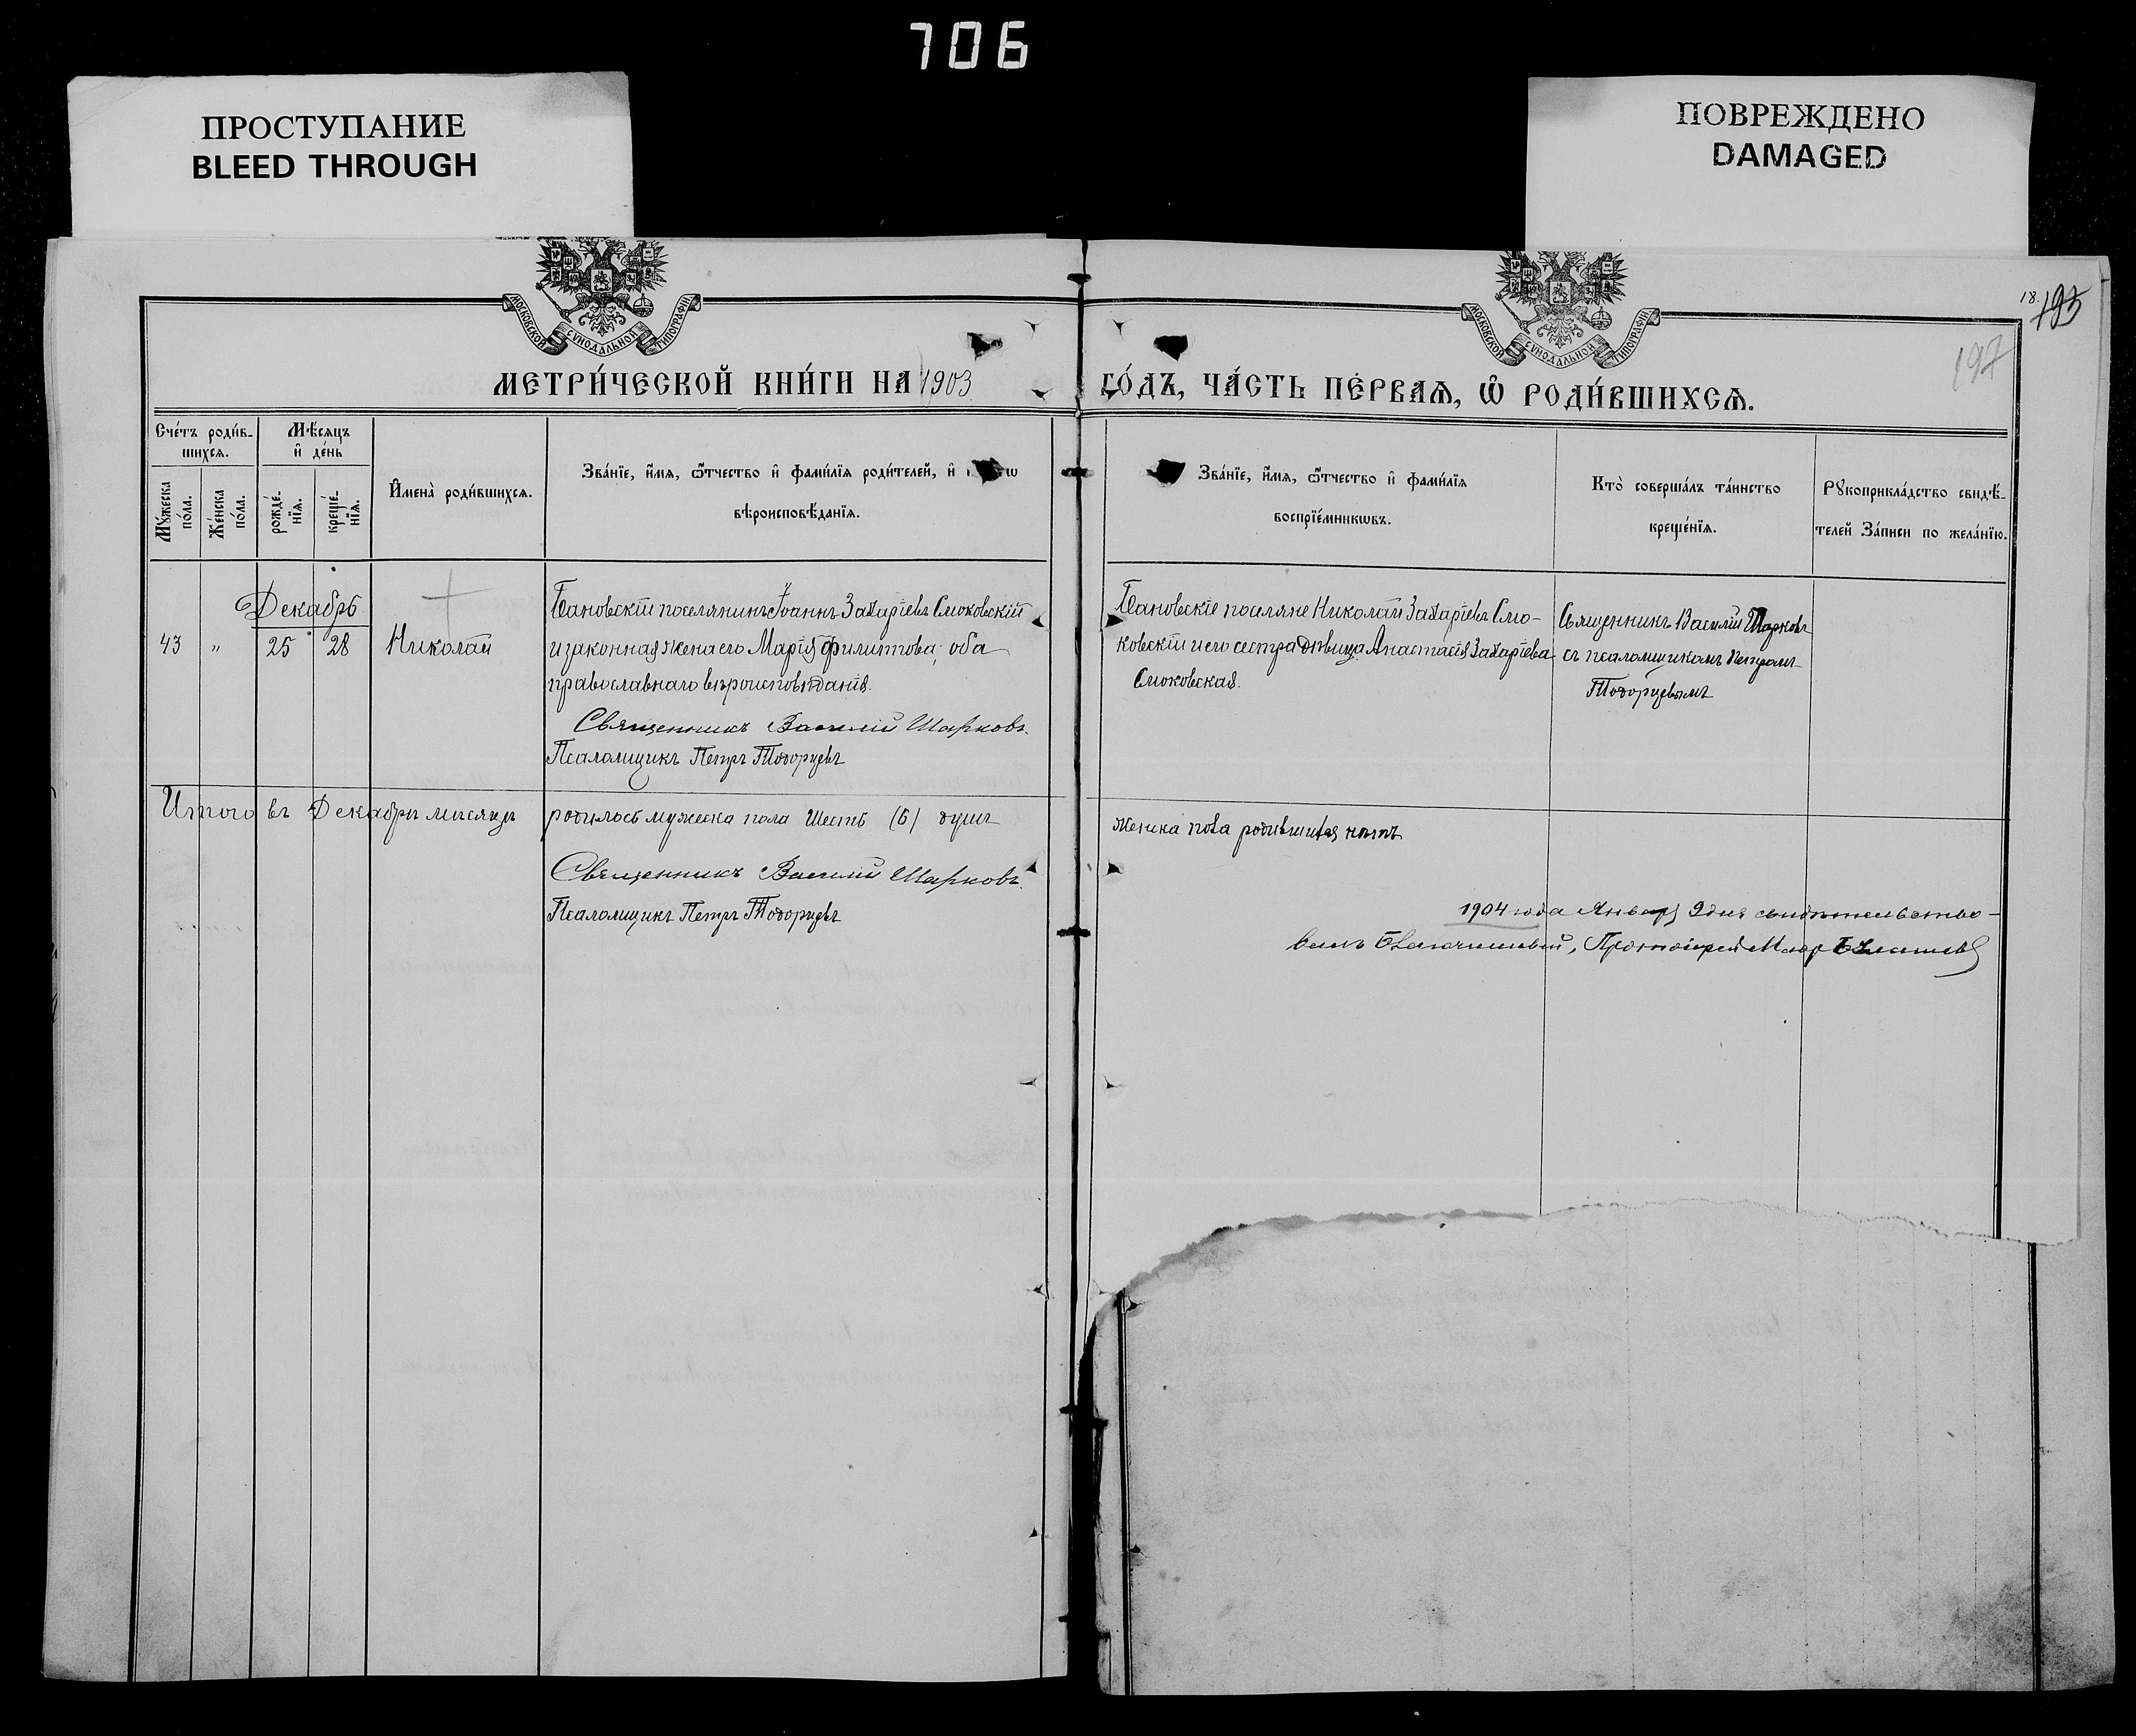 706
ПРОСТУПАНИЕ
BLEED THROUGH
ПОВРЕЖДЕНО
DAMAGED
МОСКОВСКОЙ СѴНОДАЛЬНОЙ ТИПОГРАФІИ
МОСКОВСКОЙ СѴНОДАЛЬНОЙ ТИПОГРАФІИ
18.
193
197
МЕТРИ́ЧЕСКОЙ КНИ́ГИ НА 1903 ГО́ДЪ, ЧА́СТЬ ПЕ́РВАѦ, Ѡ҆ РОДИ́ВШИХСѦ.
Сче́тъ роди́в-
шихсѧ.
Мꙋ́жеска по́ла.
Же́нска по́ла.
Мѣ́сѧцъ
и҆ де́нь
рожде́-
нїѧ.
креще́-
нїѧ.
И҆мена̀ роди́вшихсѧ.
Зва́нїе, и҆́мѧ, ѻ҆́тчество и҆ фами́лїѧ роди́телей, и҆
вѣроисповѣ́данїѧ.
Зва́нїе, и҆́мѧ, ѻ҆́тчество и҆ фами́лїѧ
воспрїе́мникѡвъ.
Кто̀ соверша́лъ та́инство
креще́нїѧ.
Рꙋкоприкла́дство свидѣ́-
телей За́писи по жела́нїю.
Декабрь
43 „ 25 28 Николай
Бановскій поселянинъ Іоаннъ Захаріевъ Смоковскій
и законная жена его Марія Филиппова; оба
православнаго вѣроисповѣданія.
Священникъ Василій Шарковъ.
Псаломщикъ Петръ Тодорцевъ
Бановскіе поселяне Николай Захаріевъ Смо-
ковскій и его сестра дѣвица Анастасія Захаріева
Смоковская.
Священникъ Василій Шарковъ
съ псаломщикомъ Петромъ
Тодорцевымъ
Итого въ Декабрѣ мѣсяцѣ родилось мужеска пола шесть (6) душъ
женска пола родившихся нѣтъ
Священникъ Василій Шарковъ.
Псаломщикъ Петръ Тодорцевъ
1904 года Января 9 дня свидѣтельство-
валъ Благочинный, Протоіерей